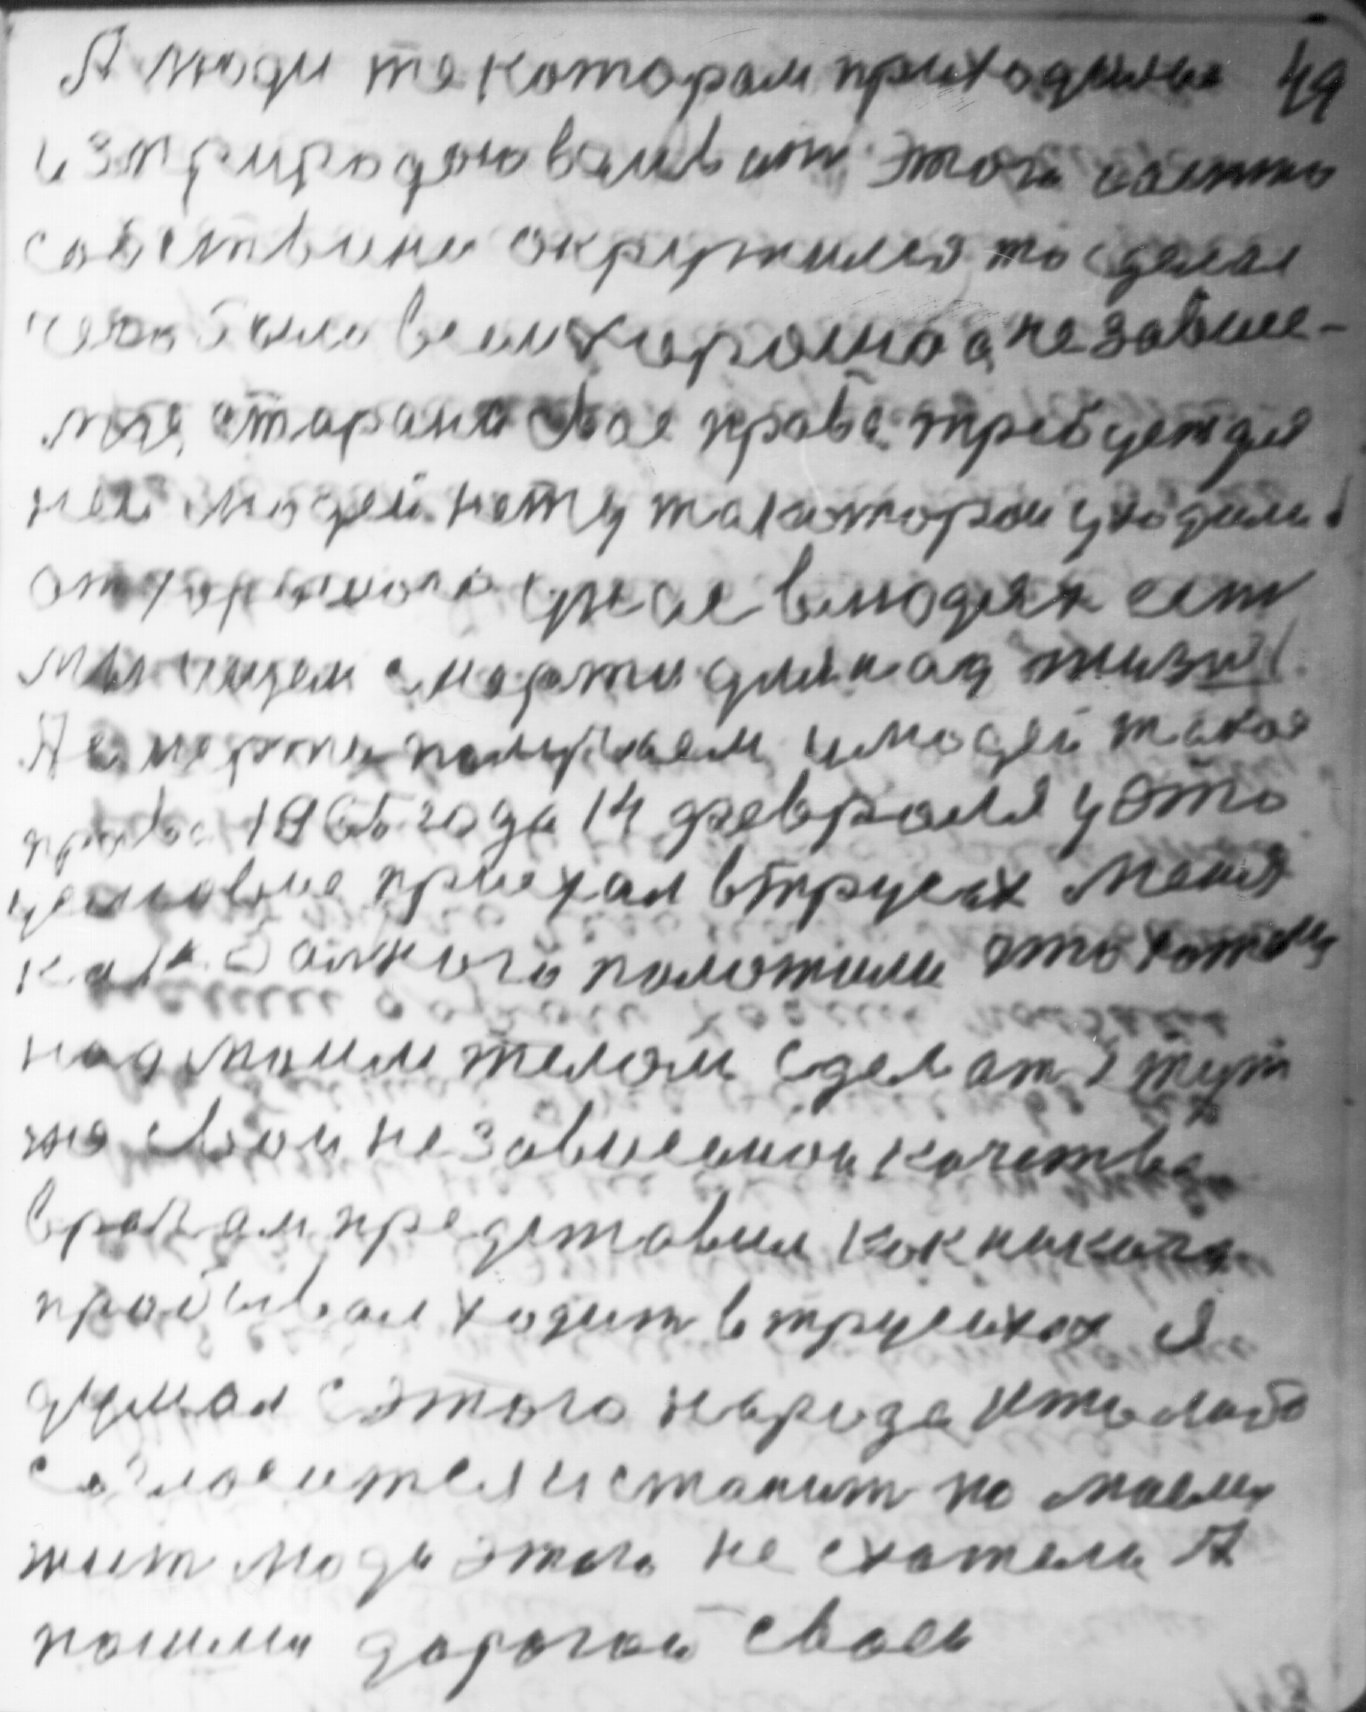 А люди те котораи приходили 49
из природою
собствини окружился то сделал
было всим хорошо а не зависе-
мае старана свае права требует для
ней людей нету та которои уходили
от хорошого хужае в людях есть
мы ищем смерти для нас жизни
А смерти помираем и людей такое
права 1965 года 14 февраля у это
условие приехал в трусах меня
как больного положили что хотят
над моим телом сделат я тут
же свои не зависемои качества
врачам представил как никогда
пробывал ходит в трусиках я
думал с этого народа кто либо
согласится и станит по моему
жит люди этого не схотели А
пошли дорогои своеи